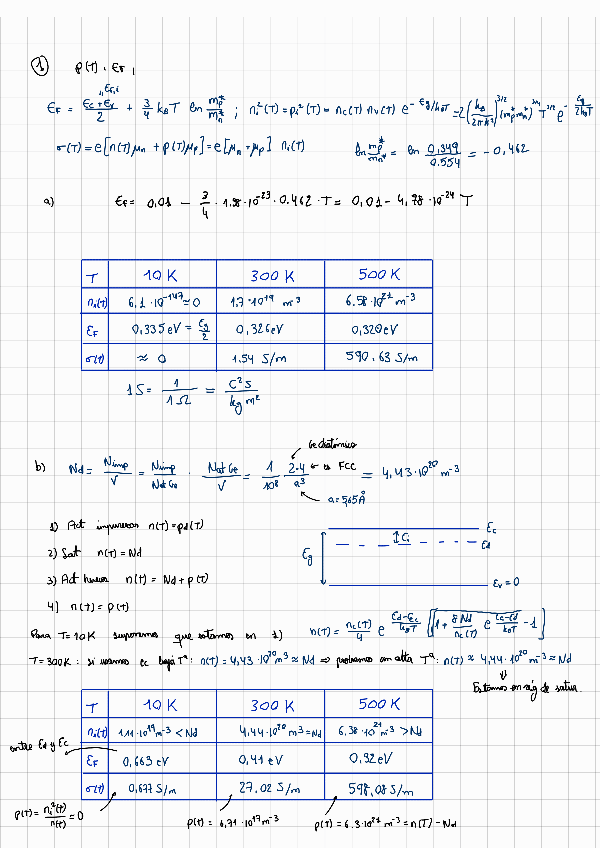 1 p(T), EF,
" EF,i
EF = (Ec+Ev)/2 + 3/4 kBT ln mp*/mn* ; ni²(T)=pi²(T)= nc(T) nv(T) e^-Eg/kBT
σ(T) = e[n(T)μn + p(T)μp] = e[μn+μp] ni(T) ln mp*/mn* = ln 0,349/0.554 = -0,462
a) EF = 0,01 - 3/4 · 1.38·10^-23 · 0.462 · T = 0,01 - 4,78·10^-24 T
T 10 K 300 K 500 K
ni(T) 6,1·10^-147 ≈ 0 1,7·10^19 m^-3 6.58·10^21 m^-3
EF 0,335 eV = Eg/2 0,326 eV 0,320 eV
σ(t) ≈ 0 1.54 S/m 590.63 S/m
1S = 1/1Ω = C²s/kg m²
Ge diatómico
b) Nd = Nimp/V = Nimp/Nat Ge · Nat Ge/V = 1/10^8 · 2·4/a³ ← es FCC = 4,43·10^20 m^-3
a = 5,65 Å
1) Act impurezas n(T)=pd(T)
2) Sat n(T) = Nd
3) Act huecos n(T) = Nd + p(T)
4) n(T) = p(T)
Eg Ec Ed Ev = 0
Para T=10K suponemos que estamos en 1) n(T) = nc(T)/4 e^(Ed-Ec)/kBT [√(1 + 8Nd/nc(T) e^(Ec-Ed)/kBT) - 1]
T=300K: si usamos ec baja Tª: n(T) = 4,43·10^20 m^-3 ≈ Nd ⇒ probamos con alta Tª: n(T) ≈ 4,44·10^20 m^-3 ≈ Nd
⇓
Estamos en rég de satur.
T 10 K 300 K 500 K
ni(T) 1.11·10^19 m^-3 < Nd 4,44·10^20 m^-3 = Nd 6,38·10^21 m^-3 > Nd
entre Ed y Ec
EF 0,663 eV 0,41 eV 0,32 eV
σ(t) 0,677 S/m 27.02 S/m 598,08 S/m
p(T) = ni²(t)/n(t) = 0 p(T) = 6,71·10^17 m^-3 p(T) = 6.3·10^21 m^-3 = n(T) - Nd